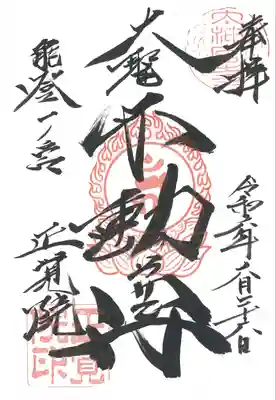 奉拝
令和六年八月二十六日
大聖不動尊
能登一ノ宮
正覚院
正覺院印